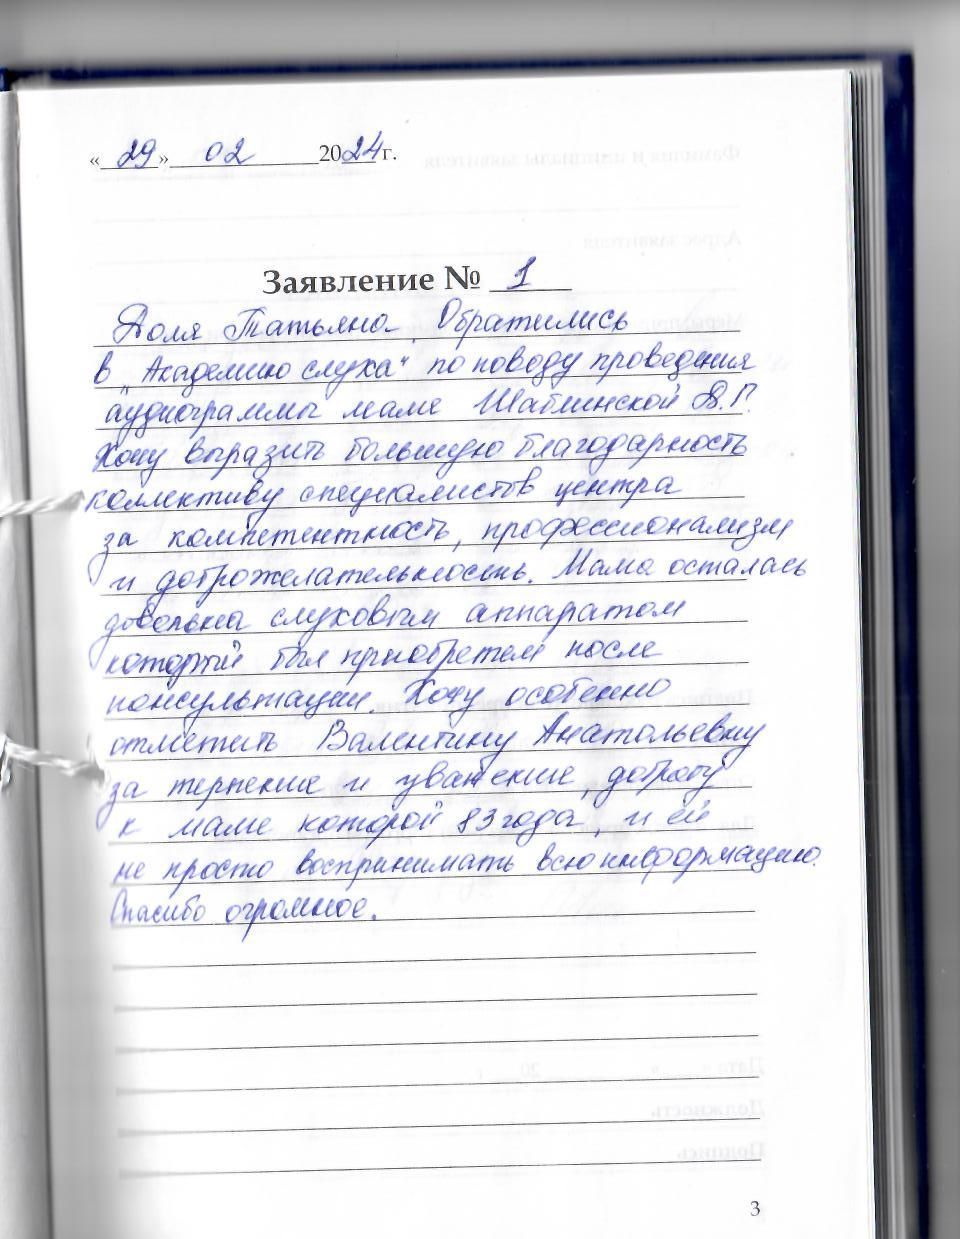 « 29 » 02 2024 г.
Заявление № 1
Доля Татьяна. Обратились
в „Академию слуха“ по поводу проведения
аудиограммы маме Шаблинской В.Г.
Хочу выразить большую благодарность
коллективу специалистов центра
за компетентность, профессионализм
и доброжелательность. Мама осталась
довольна слуховым аппаратом
который был приобретен после
консультации. Хочу особенно
отметить Валентину Анатольевну
за терпение и уважение, доброту
к маме которой 83 года, и ей
не просто воспринимать всю информацию.
Спасибо огромное.
3